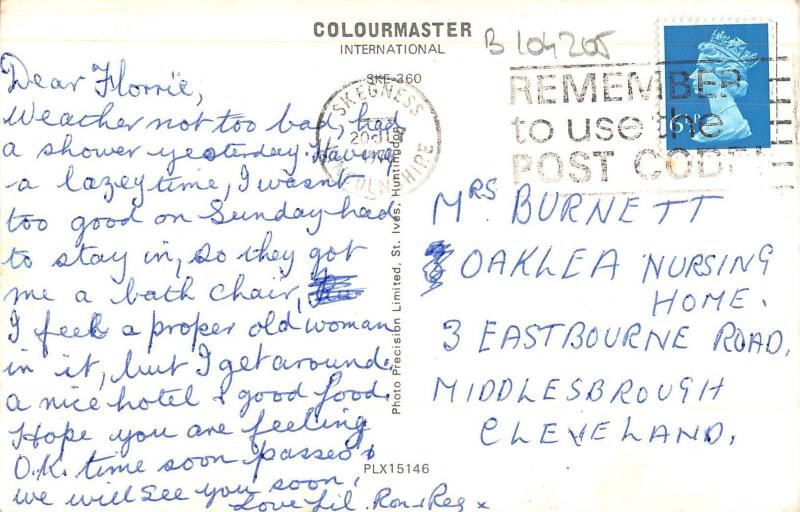 COLOURMASTER
INTERNATIONAL
B 104205
SKE-360
SKEGNESS
20 JL
LINCOLNSHIRE
REMEMBER
to use the
POST CODE
6½P
Dear Florrie,
Weather not too bad, had
a shower yesterday. Having
a lazey time, I wasnt
too good on Sunday had
to stay in, so they got
me a bath chair,
I feel a proper old woman
in it, but I get around.
a nice hotel & good food.
Hope you are feeling
O.K. time soon passes &
we will see you soon,
Love Lil. Ron & Reg x
Photo Precision Limited, St. Ives, Huntingdon
PLX15146
MRS BURNETT
OAKLEA NURSING
HOME.
3 EASTBOURNE ROAD,
MIDDLESBROUGH
CLEVELAND.